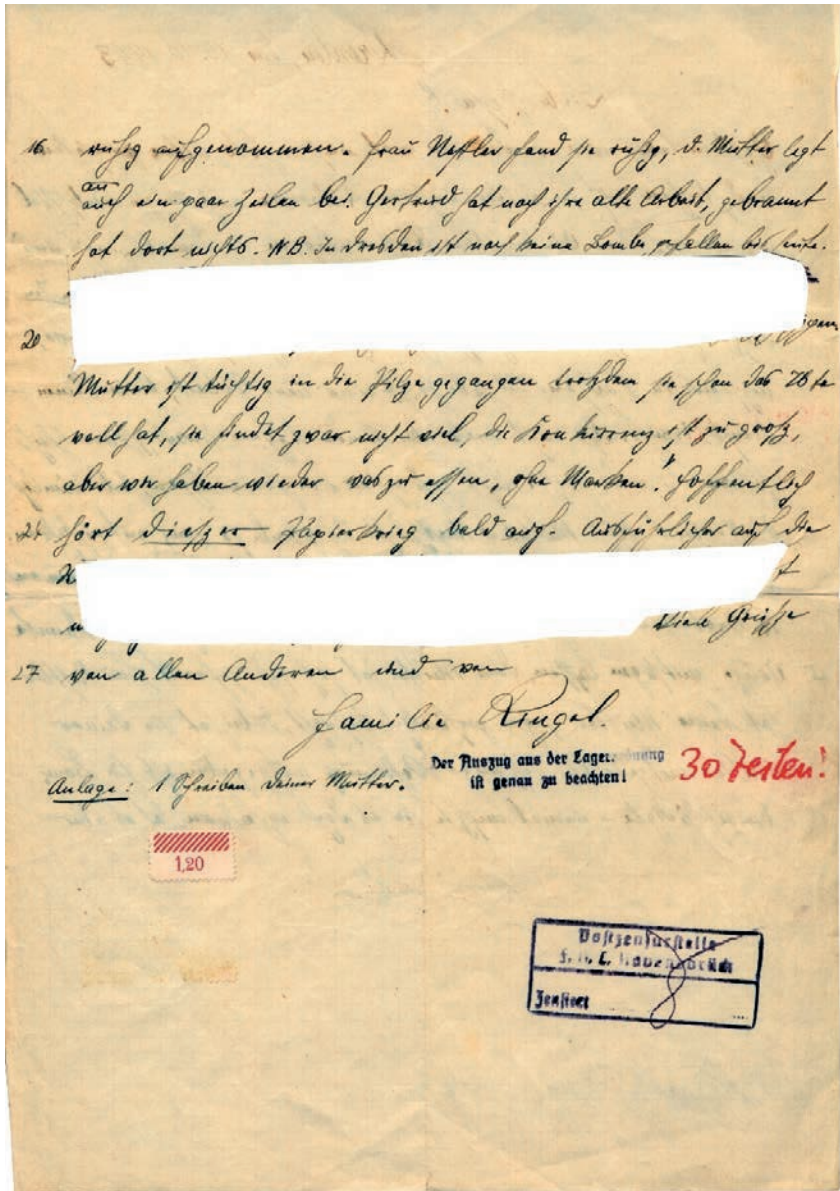 16 ruhig aufgenommen. Frau Neffler fand sie ruhig, d. Mutter legt
auch ein paar Zeilen bei. Gertrud hat noch ihre alte Arbeit, gebrannt
hat dort nichts. N.B. In Dresden ist noch keine Bombe gefallen bis heute.
20
Mutter ist tüchtig in die Pilze gegangen trotzdem sie schon das 78 te
voll hat, sie findet zwar nicht viel, die Konkurrenz ist zu groß,
aber wir haben wieder was zu essen, ohne Marken." Hoffentlich
24 hört dieszer Papierkrieg bald auf. Ausführlicher auf die
Viele Grüsse
27 von allen Anderen und von
Familie Ringel.
Der Auszug aus der Lager
ist genau zu beachten!
30 Zeilen!
Anlage: 1 Schreiben Deiner Mutter.
1,20
Postzensurstelle
F. K. L. Ravensbrück
Zensiert